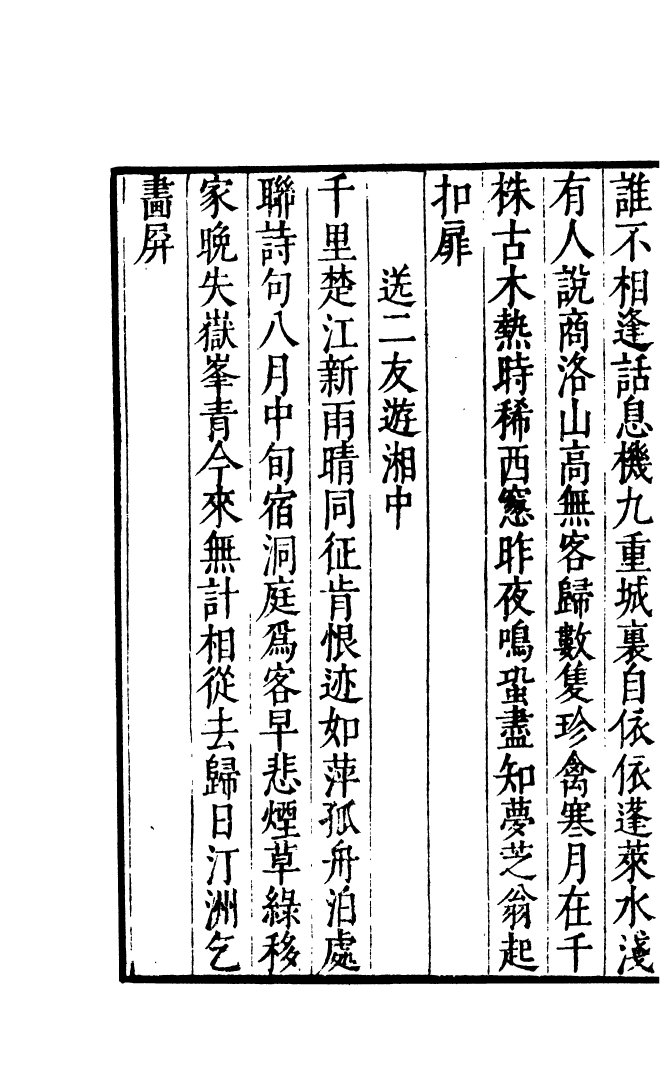 誰不相逢話息機九重城裏自依依蓬萊水淺
有人說商洛山高無客歸數隻珍禽寒月在千
株古木熱時稀西窻昨夜鳴蛩盡知夢芝翁起
扣扉
送二友遊湘中
千里楚江新雨晴同征肯恨迹如萍孤舟泊處
聯詩句八月中旬宿洞庭爲客早悲煙草綠移
家晚失嶽峯青今來無計相從去歸日汀洲乞
畫屏